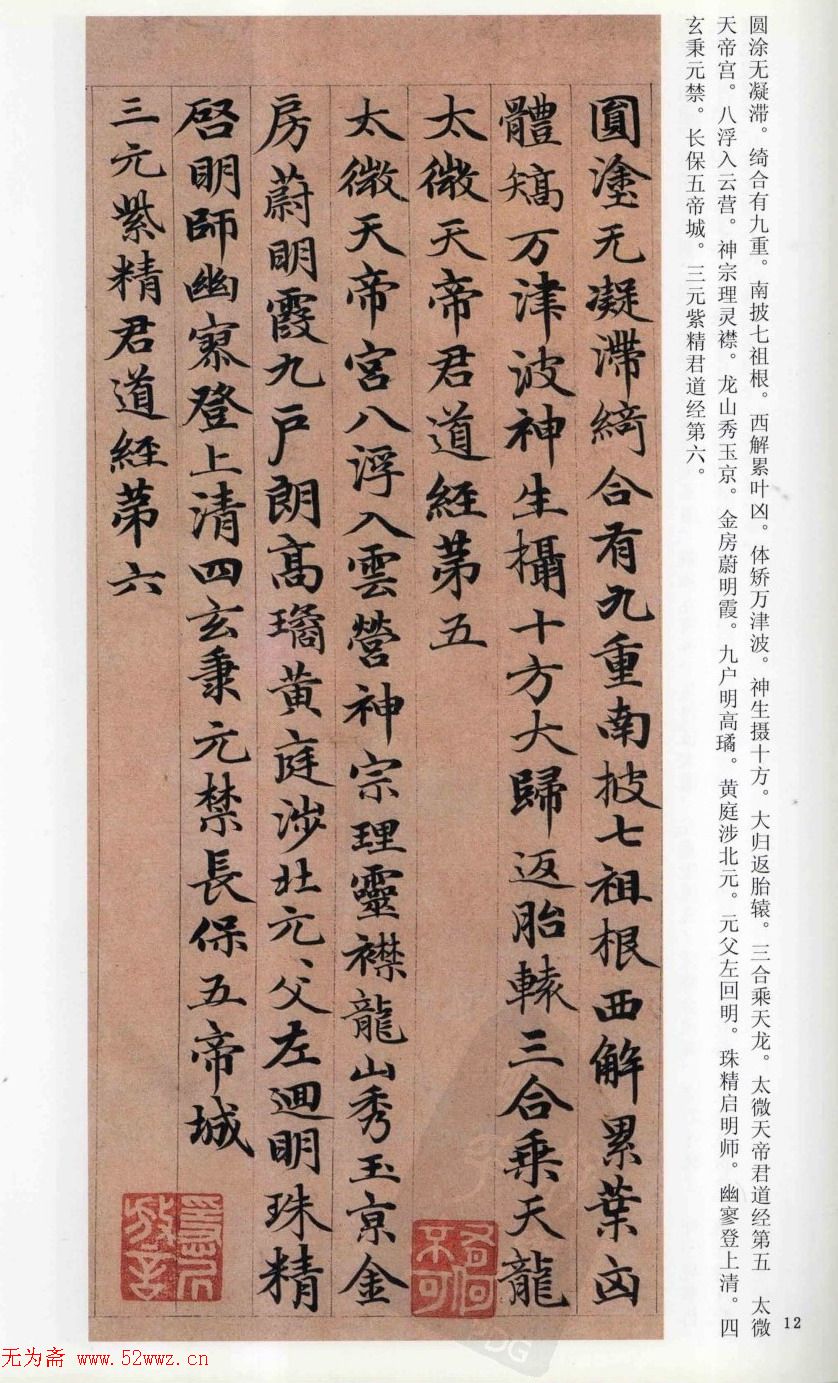 圆涂无凝滞。绮合有九重。南披七祖根。西解累叶凶。体矫万津波。神生摄十方。大归返胎辕。三合乘天龙。太微天帝君道经第五　太微
天帝宫。八浮入云营。神宗理灵襟。龙山秀玉京。金房蔚明霞。九户明高璚。黄庭涉北元。元父左回明。珠精启明师。幽寥登上清。四
玄秉元禁。长保五帝城。三元紫精君道经第六。
圓塗无凝滯綺合有九重南披七祖根西解累葉凶
體矯万津波神生攝十方大歸返胎轅三合乗天龍
太微天帝君道經苐五
太微天帝宮八浮入雲營神宗理靈襟龍山秀玉京金
房蔚明霞九戶朗高璚黄庭涉北元、父左迴明珠精
啓明師幽寥登上清四玄秉元禁長保五帝城
三元紫精君道經苐六
12
无为斋 www.52wwz.cn